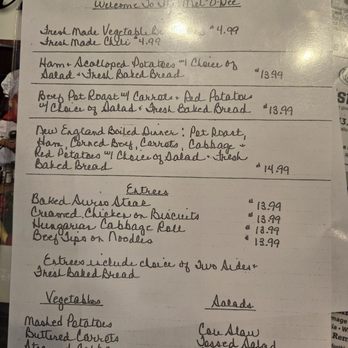 Welcome To The Mel-O-Dee
Fresh Made Vegetable $4.99
Fresh Made Chili $4.99
Ham & Scalloped Potatoes w/ Choice of
Salad & Fresh Baked Bread $13.99
Beef Pot Roast w/ Carrots & Red Potatoes
w/ Choice of Salad & Fresh Baked Bread $13.99
New England Boiled Dinner: Pot Roast,
Ham, Corned Beef, Carrots, Cabbage &
Red Potatoes w/ Choice of Salad & Fresh
Baked Bread $14.99
Entrees
Baked Swiss Steak $13.99
Creamed Chicken on Biscuits $13.99
Hungarian Cabbage Roll $13.99
Beef Tips on Noodles $13.99
Entrees include choice of Two Sides &
Fresh Baked Bread
Vegetables
Salads
Mashed Potatoes
Cole Slaw
Buttered Carrots
Tossed Salad